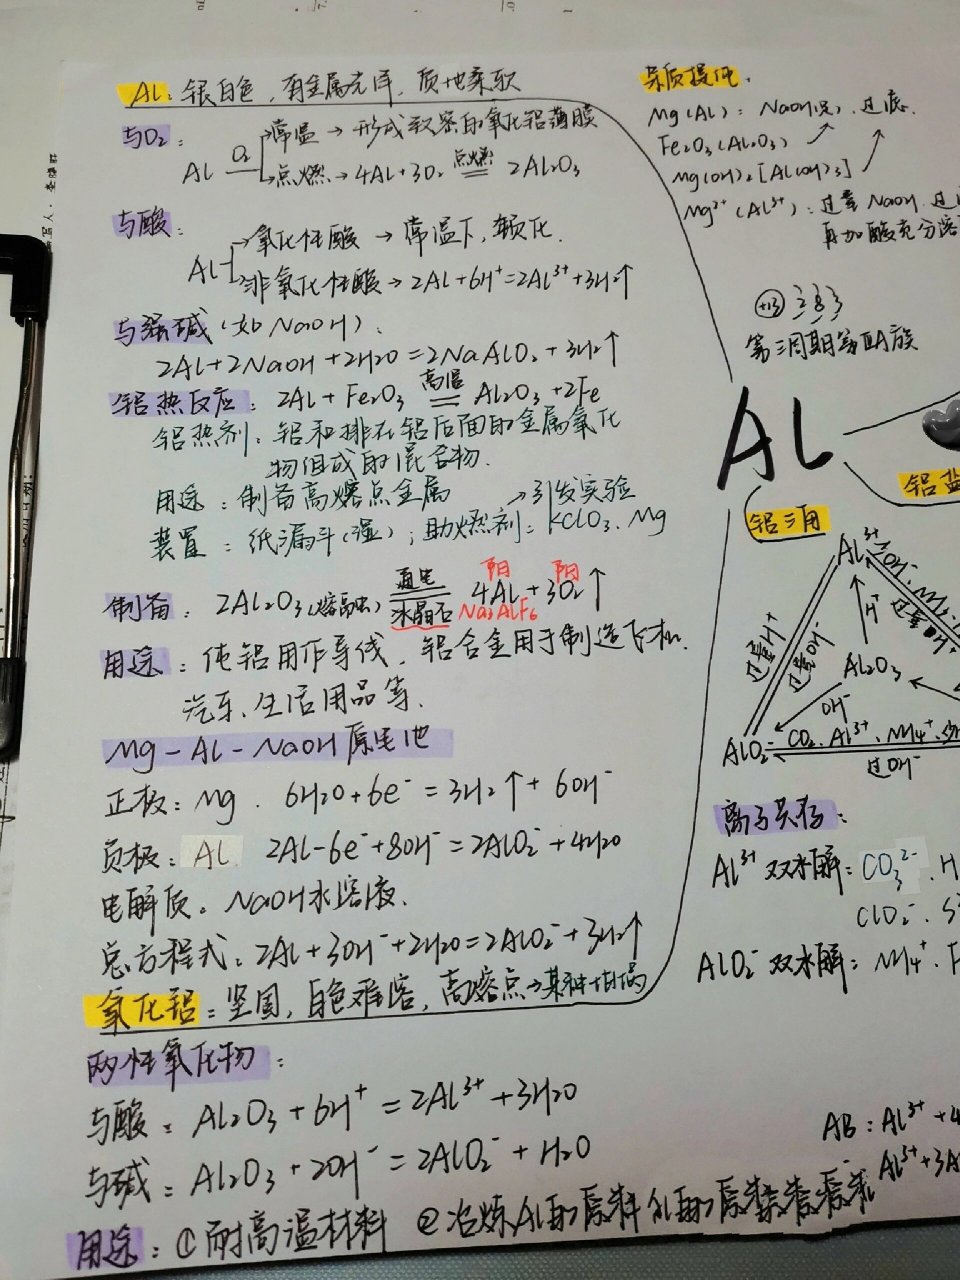 Al: 银白色，有金属光泽，质地柔软
与O₂:
Al O₂ 常温 → 形成致密的氧化铝薄膜
点燃 → 4Al+3O₂ 点燃== 2Al₂O₃
与酸:
Al 氧化性酸 → 常温下，钝化.
非氧化性酸 → 2Al+6H⁺=2Al³⁺+3H₂↑
与强碱(如NaOH):
2Al+2NaOH+2H₂O=2NaAlO₂+3H₂↑
铝热反应: 2Al+Fe₂O₃ 高温== Al₂O₃+2Fe
铝热剂: 铝和排在铝后面的金属氧化
物组成的混合物.
用途: 制备高熔点金属 →引发实验
装置: 纸漏斗(湿); 助燃剂: KClO₃. Mg
制备: 2Al₂O₃(熔融) 通电== 冰晶石 Na₃AlF₆ 4Al 阳 + 3O₂ 阳 ↑
用途: 纯铝用作导线，铝合金用于制造飞机.
汽车、生活用品等.
Mg-Al-NaOH原电池
正极: Mg. 6H₂O+6e⁻=3H₂↑+6OH⁻
负极: Al. 2Al-6e⁻+8OH⁻=2AlO₂⁻+4H₂O
电解质: NaOH水溶液.
总方程式: 2Al+3OH⁻+2H₂O=2AlO₂⁻+3H₂↑
氧化铝: 坚固，白色难溶，高熔点→某种坩埚
两性氧化物:
与酸: Al₂O₃+6H⁺=2Al³⁺+3H₂O
与碱: Al₂O₃+2OH⁻=2AlO₂⁻+H₂O
用途: ①耐高温材料 ②冶炼Al的原料
杂质提纯.
Mg(Al): NaOH(足). 过滤.
Fe₂O₃(Al₂O₃)
Mg(OH)₂[Al(OH)₃]
Mg²⁺(Al³⁺): 过量NaOH. 过
再加酸充分溶
+13 2 8 3
第三周期第ⅢA族
Al
铝盐
铝三角
Al³⁺
过量H⁺
过量OH⁻
H⁺
过量OH⁻
Al₂O₃
OH⁻
AlO₂⁻ CO₂、Al³⁺、NH₄⁺、少H
过OH⁻
离子共存:
Al³⁺双水解: CO₃²⁻. H
ClO₂⁻. S²
AlO₂⁻双水解: NH₄⁺. F
AB: Al³⁺+4
Al³⁺+3A